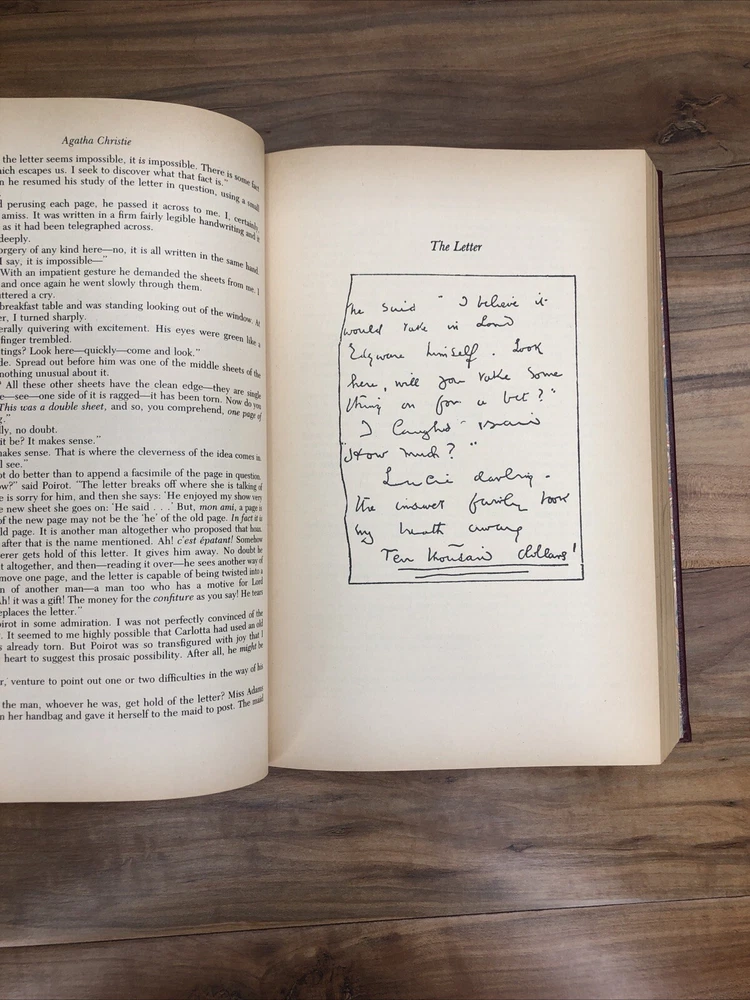 Agatha Christie
the letter seems impossible, it is impossible. There is some fact
ich escapes us. I seek to discover what that fact is."
n he resumed his study of the letter in question, using a small
perusing each page, he passed it across to me. I, certainly,
amiss. It was written in a firm fairly legible handwriting and it
as it had been telegraphed across.
deeply.
orgery of any kind here—no, it is all written in the same hand.
I say, it is impossible—"
With an impatient gesture he demanded the sheets from me. I
and once again he went slowly through them.
uttered a cry.
breakfast table and was standing looking out of the window. At
er, I turned sharply.
erally quivering with excitement. His eyes were green like a
finger trembled.
tings? Look here—quickly—come and look."
de. Spread out before him was one of the middle sheets of the
nothing unusual about it.
? All these other sheets have the clean edge—they are single
e—see—one side of it is ragged—it has been torn. Now do you
This was a double sheet, and so, you comprehend, one page of
g."
lly, no doubt.
it be? It makes sense."
makes sense. That is where the cleverness of the idea comes in.
l see."
ot do better than to append a facsimile of the page in question.
ow?" said Poirot. "The letter breaks off where she is talking of
e is sorry for him, and then she says: 'He enjoyed my show very
e new sheet she goes on: 'He said . . .' But, mon ami, a page is
of the new page may not be the 'he' of the old page. In fact it is
ld page. It is another man altogether who proposed that hoax.
after that is the name mentioned. Ah! c'est épatant! Somehow
erer gets hold of this letter. It gives him away. No doubt he
t altogether, and then—reading it over—he sees another way of
move one page, and the letter is capable of being twisted into a
n of another man—a man too who has a motive for Lord
h! it was a gift! The money for the confiture as you say! He tears
eplaces the letter."
irot in some admiration. I was not perfectly convinced of the
. It seemed to me highly possible that Carlotta had used an old
s already torn. But Poirot was so transfigured with joy that I
heart to suggest this prosaic possibility. After all, he might be
r, venture to point out one or two difficulties in the way of his
the man, whoever he was, get hold of the letter? Miss Adams
n her handbag and gave it herself to the maid to post. The maid
The Letter
he said " I believe it
would take in Lord
Edgware himself. Look
here, will you take some
thing on for a bet?"
I laughed & said
"How much?"
Lucie darling -
the answer fairly took
my breath away
Ten thousand dollars!